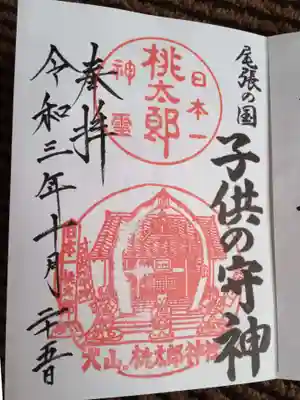 尾張の国
子供の守神
日本一
桃太郎
神霊
奉拝
令和三年十月二十五日
日本一
犬山・桃太郎神社